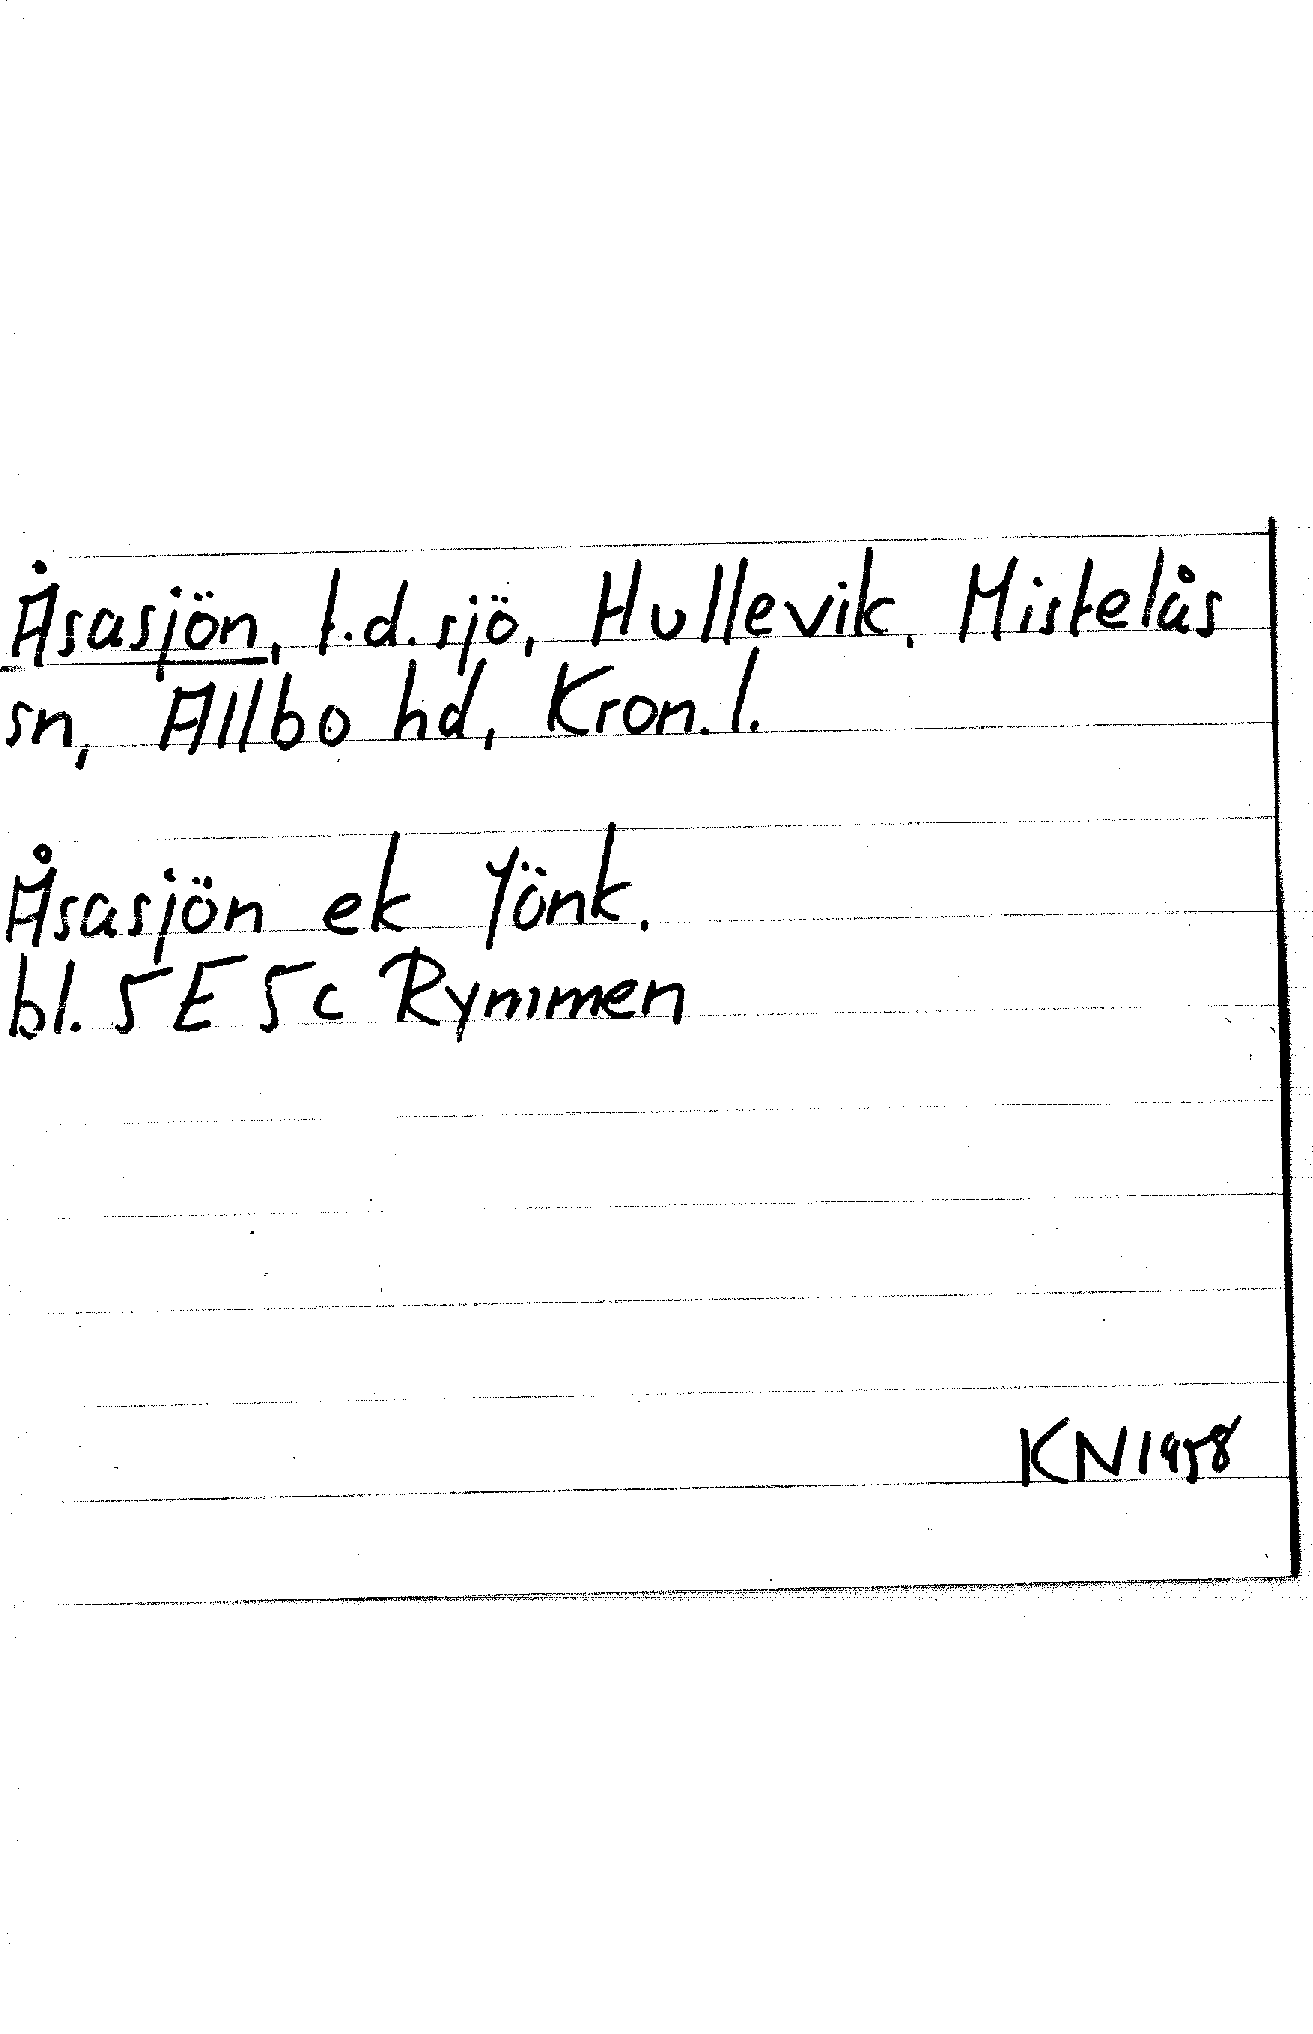 Åsasjön, t.d. sjö, Hullevik, Mistelås
sn, Allbo hd, Kron. l.
Åsasjön ek Jönk.
bl. 5E 5c Rymmen
KN1958